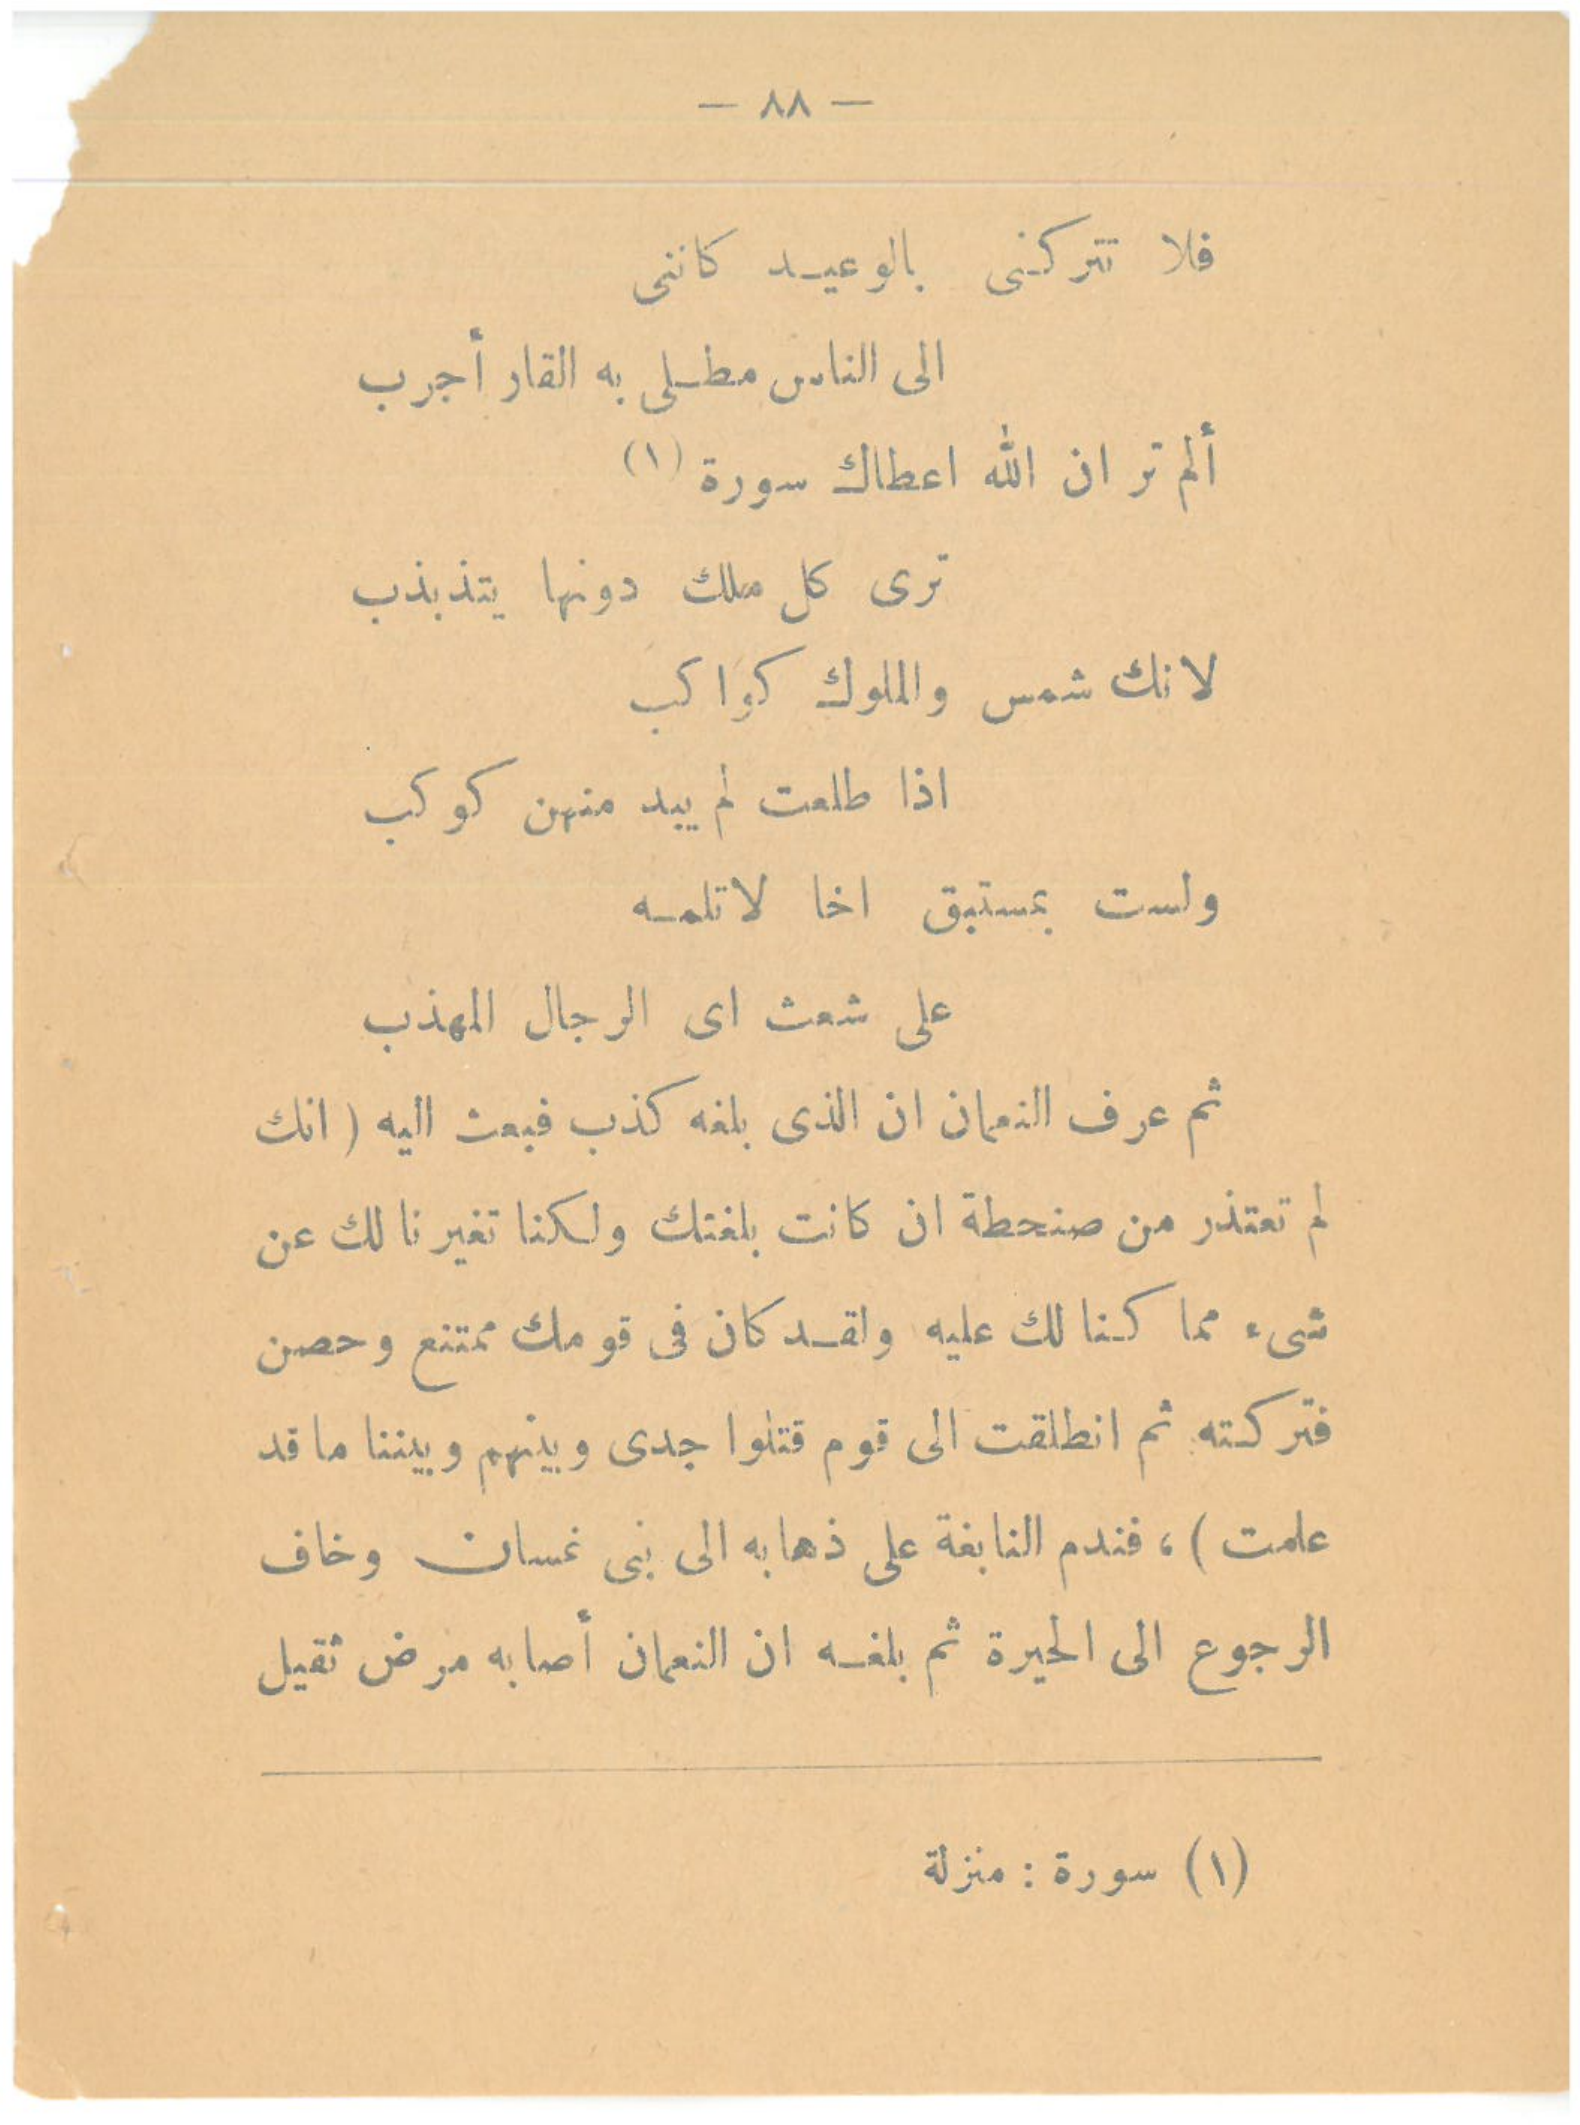 — ٨٨ —
فلا تتركنى بالوعيد كاننى
الى الناس مطلى به القار أجرب
ألم تر ان الله اعطاك سورة (١)
ترى كل ملك دونها يتذبذب
لانك شمس والملوك كواكب
اذا طلعت لم يبد منهن كوكب
ولست بمستبق اخا لاتلمه
على شعث اى الرجال المهذب
ثم عرف النعمان ان الذى بلغه كذب فبعث اليه ( انك
لم تعتذر من صنحطة ان كانت بلغتك ولكنا تغيرنا لك عن
شىء مما كنا لك عليه ولقد كان فى قومك ممتنع وحصن
فتركته ثم انطلقت الى قوم قتلوا جدى وبينهم وبيننا ما قد
علمت ) ، فندم النابغة على ذهابه الى بنى غسان وخاف
الرجوع الى الحيرة ثم بلغه ان النعمان أصابه مرض ثقيل
(١) سورة : منزلة